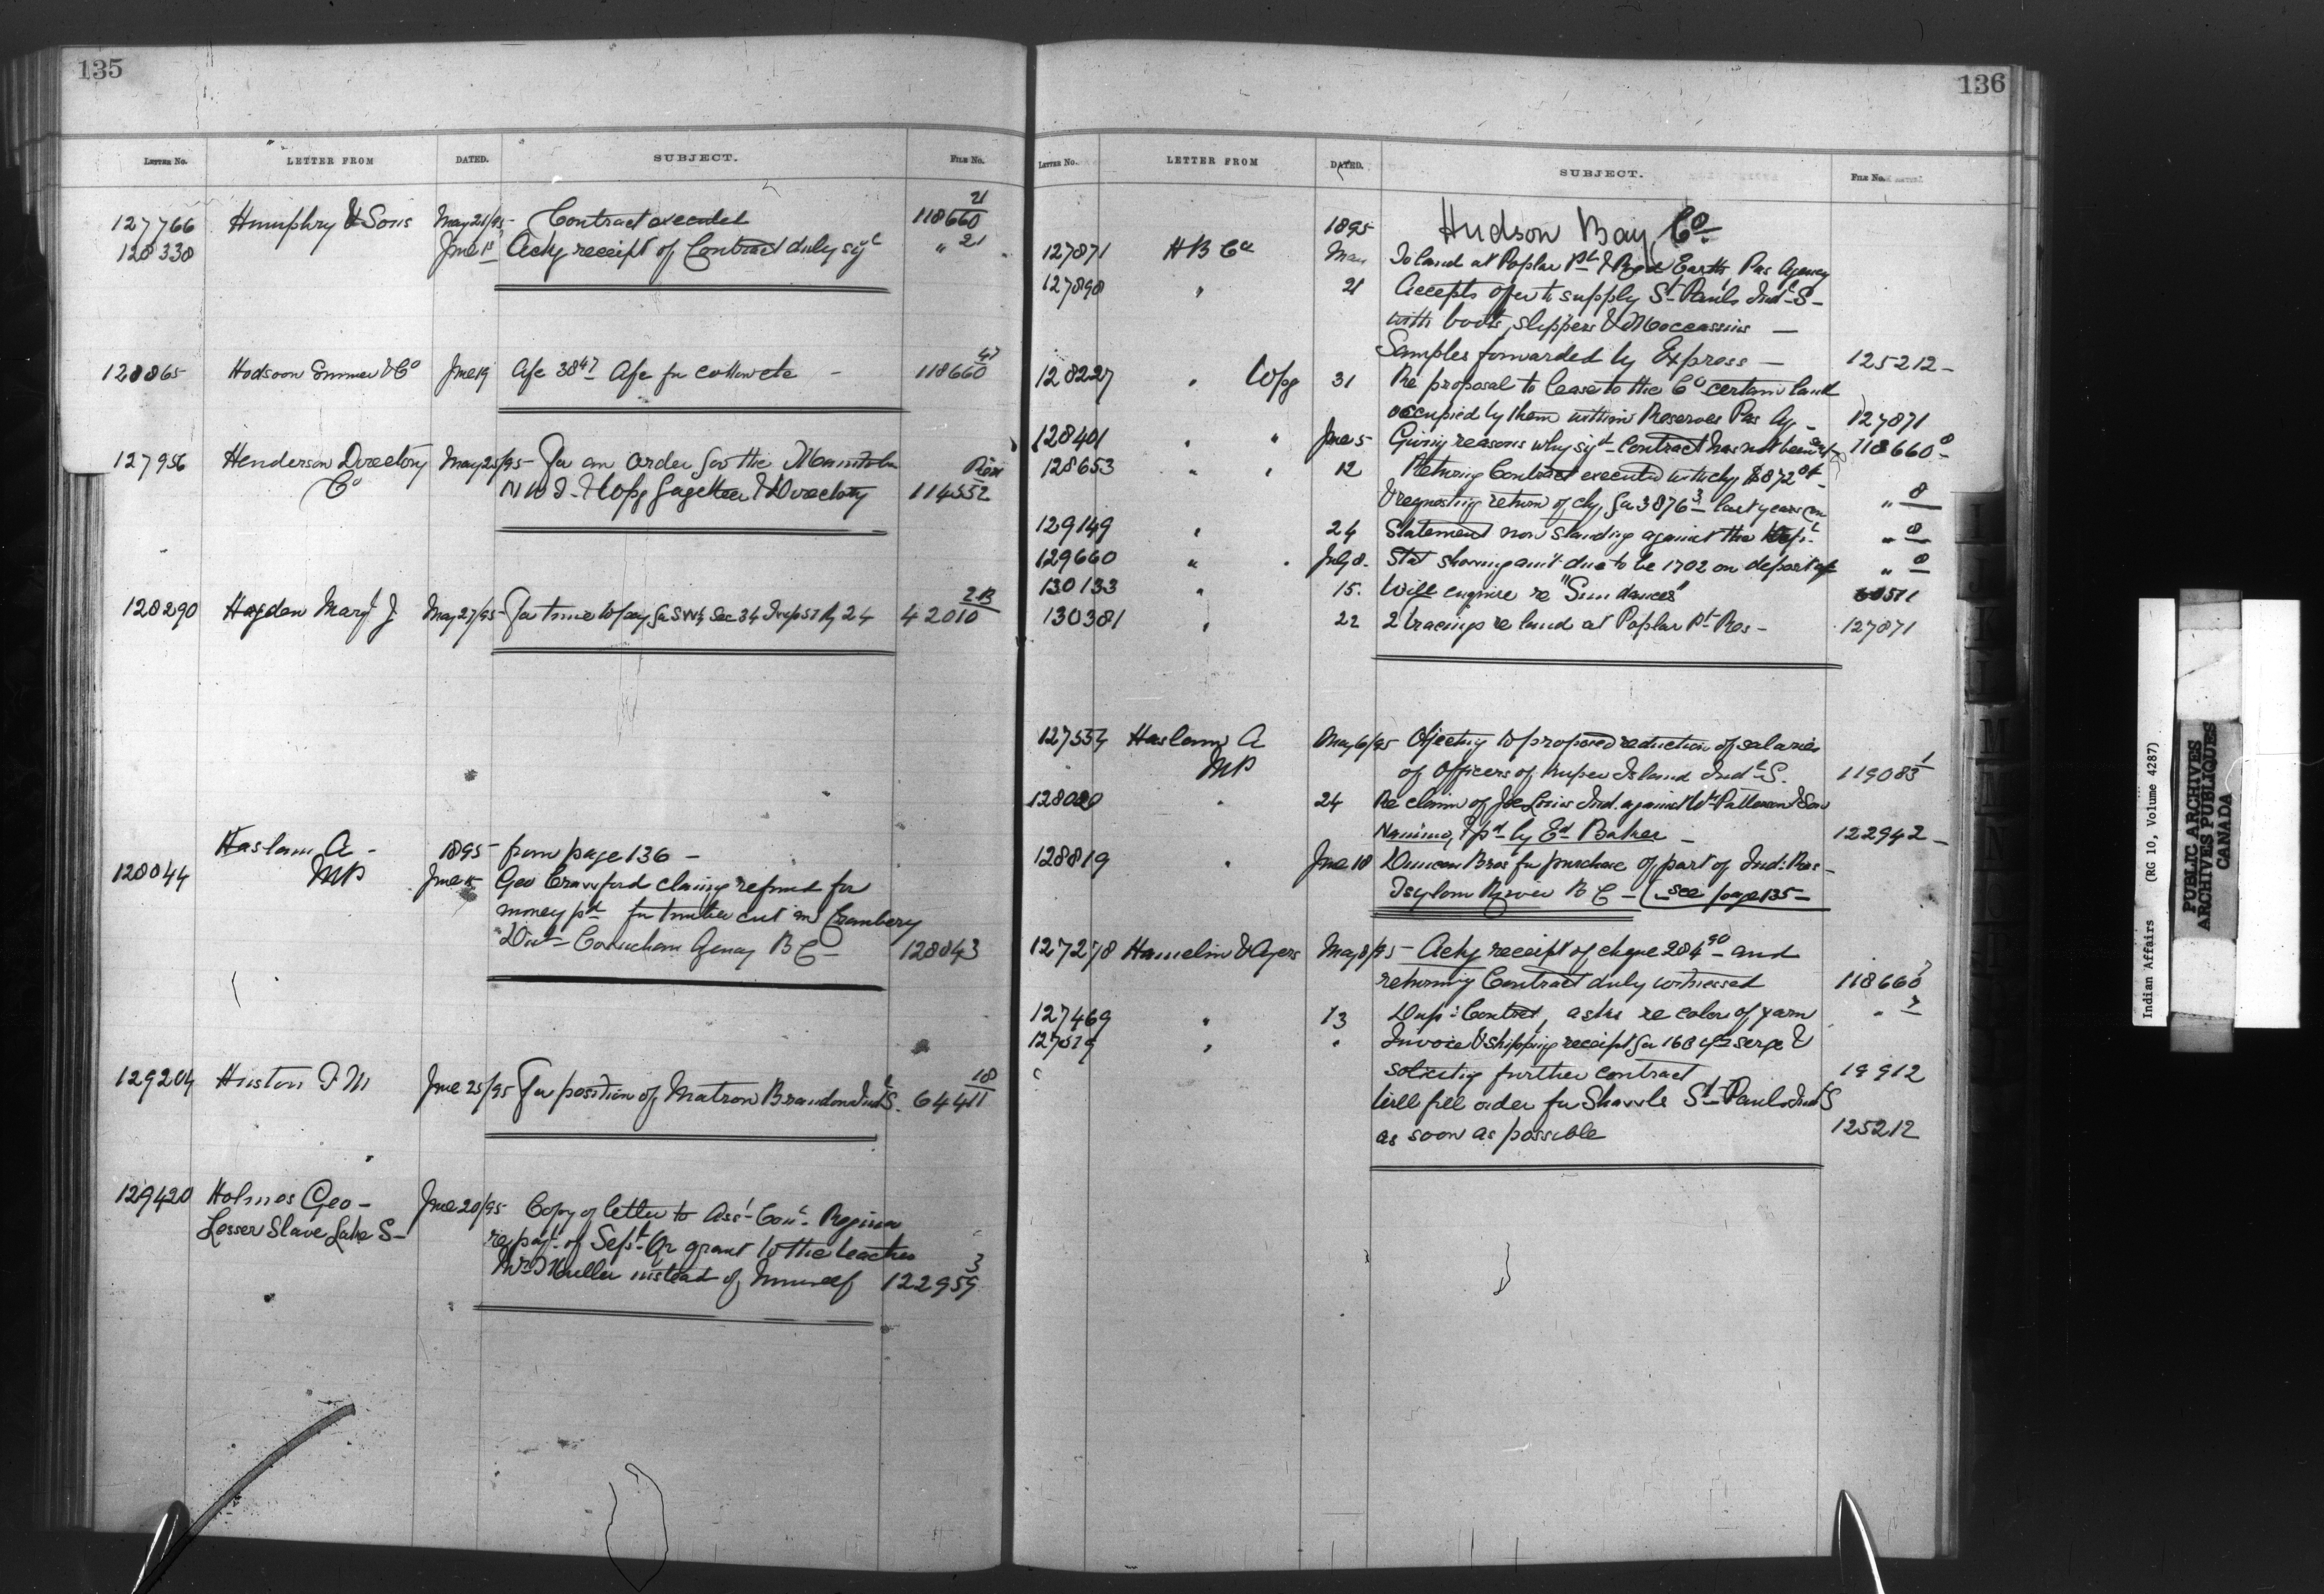 135
LETTER No. LETTER FROM DATED. SUBJECT. FILE No.
127766 Humphry & Sons May 21/95 Contract executed 118660 21
128338 June 1st Ackg receipt of Contract duly sigd " 21
128865 Hodgson Sumner & Co June 19 A/c 38 47 A/c for 118660 47
127956 Henderson Directory May 25/95 For an order for the Manitoba
Co N W T & Wpg Gazetteer & Directory 114552
128290 Hayden Mary J May 27/95 For time to pay for SW¼ Sec 34 Twp 51 R 24 42010
Haslam A - 1895 from page 136 -
128044 MP June Geo Crawford claiming refund for
money pd for timber cut in Cranbery
Dist Cowichan Agency B C - 128043
129204 Huston J M June 25/95 For position of Matron Brandon Indl S. 64411 18
129420 Holmes Geo - June 20/95 Copy of letter to Asst Comr Regina
Lesser Slave Lake S - re payt of Sept Qr grant to the teacher
instead of himself 122959 3
136
LETTER No. LETTER FROM DATED. SUBJECT. FILE No.
1895 Hudson Bay Co.
127871 H B Co May To land at Poplar Pt & Red Earth Pas Agency
127898 " 21 Accepts offer to supply St Pauls Indl S -
with boots, slippers & Moccassins -
Samples forwarded by Express - 125212 -
128227 " Wpg 31 Re proposal to lease to the Co certain land
occupied by them within Reserves Pas Ag - 127871
128401 " " June 5 Giving reasons why sigd Contract has not been 118660 8
128653 " " 12 Returning Contract executed with chq $872
& requesting return of chq for 3876 3 last years " 8
129149 " 24 Statement now standing against the Dept " 8
129660 " July 8. Stat showing amt due to be 1702 on depart " 8
130133 " 15. Will enquire re "Sun dances" 60511
130381 " 22 2 tracings re land at Poplar Pt Res - 127871
127554 Haslam A May 6/95 Objecting to proposed reduction of salaries
MP of Officers of Kuper Island Indl S. 119083 1
128020 " 24 Re claim of Joe Louis Ind. against Wm Patterson & Son
Nanimo, by Ed Baker - 122942 -
128819 " June 18 Duncan Bros for purchase of part of Ind. Res -
River B C - (see page 135 -
127278 Hamelin & Ayers May 8/95 - Ackg receipt of cheque 284 90 and
returning Contract duly witnessed 118660 7
127469 " 13 Dup. Contract, asks re color of yarn " 7
" " Invoice & shipping receipt for 168 yds serge &
soliciting further contract 19912
Will fill order for Shawls St Pauls Indl S
as soon as possible 125212
Indian Affairs (RG 10, Volume 4287)
PUBLIC ARCHIVES
ARCHIVES PUBLIQUES
CANADA